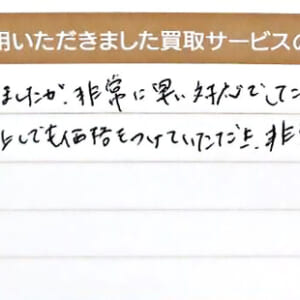 用いただきました買取サービスの
ましたが、非常に早い対応でした
しても価格をつけていただき、非